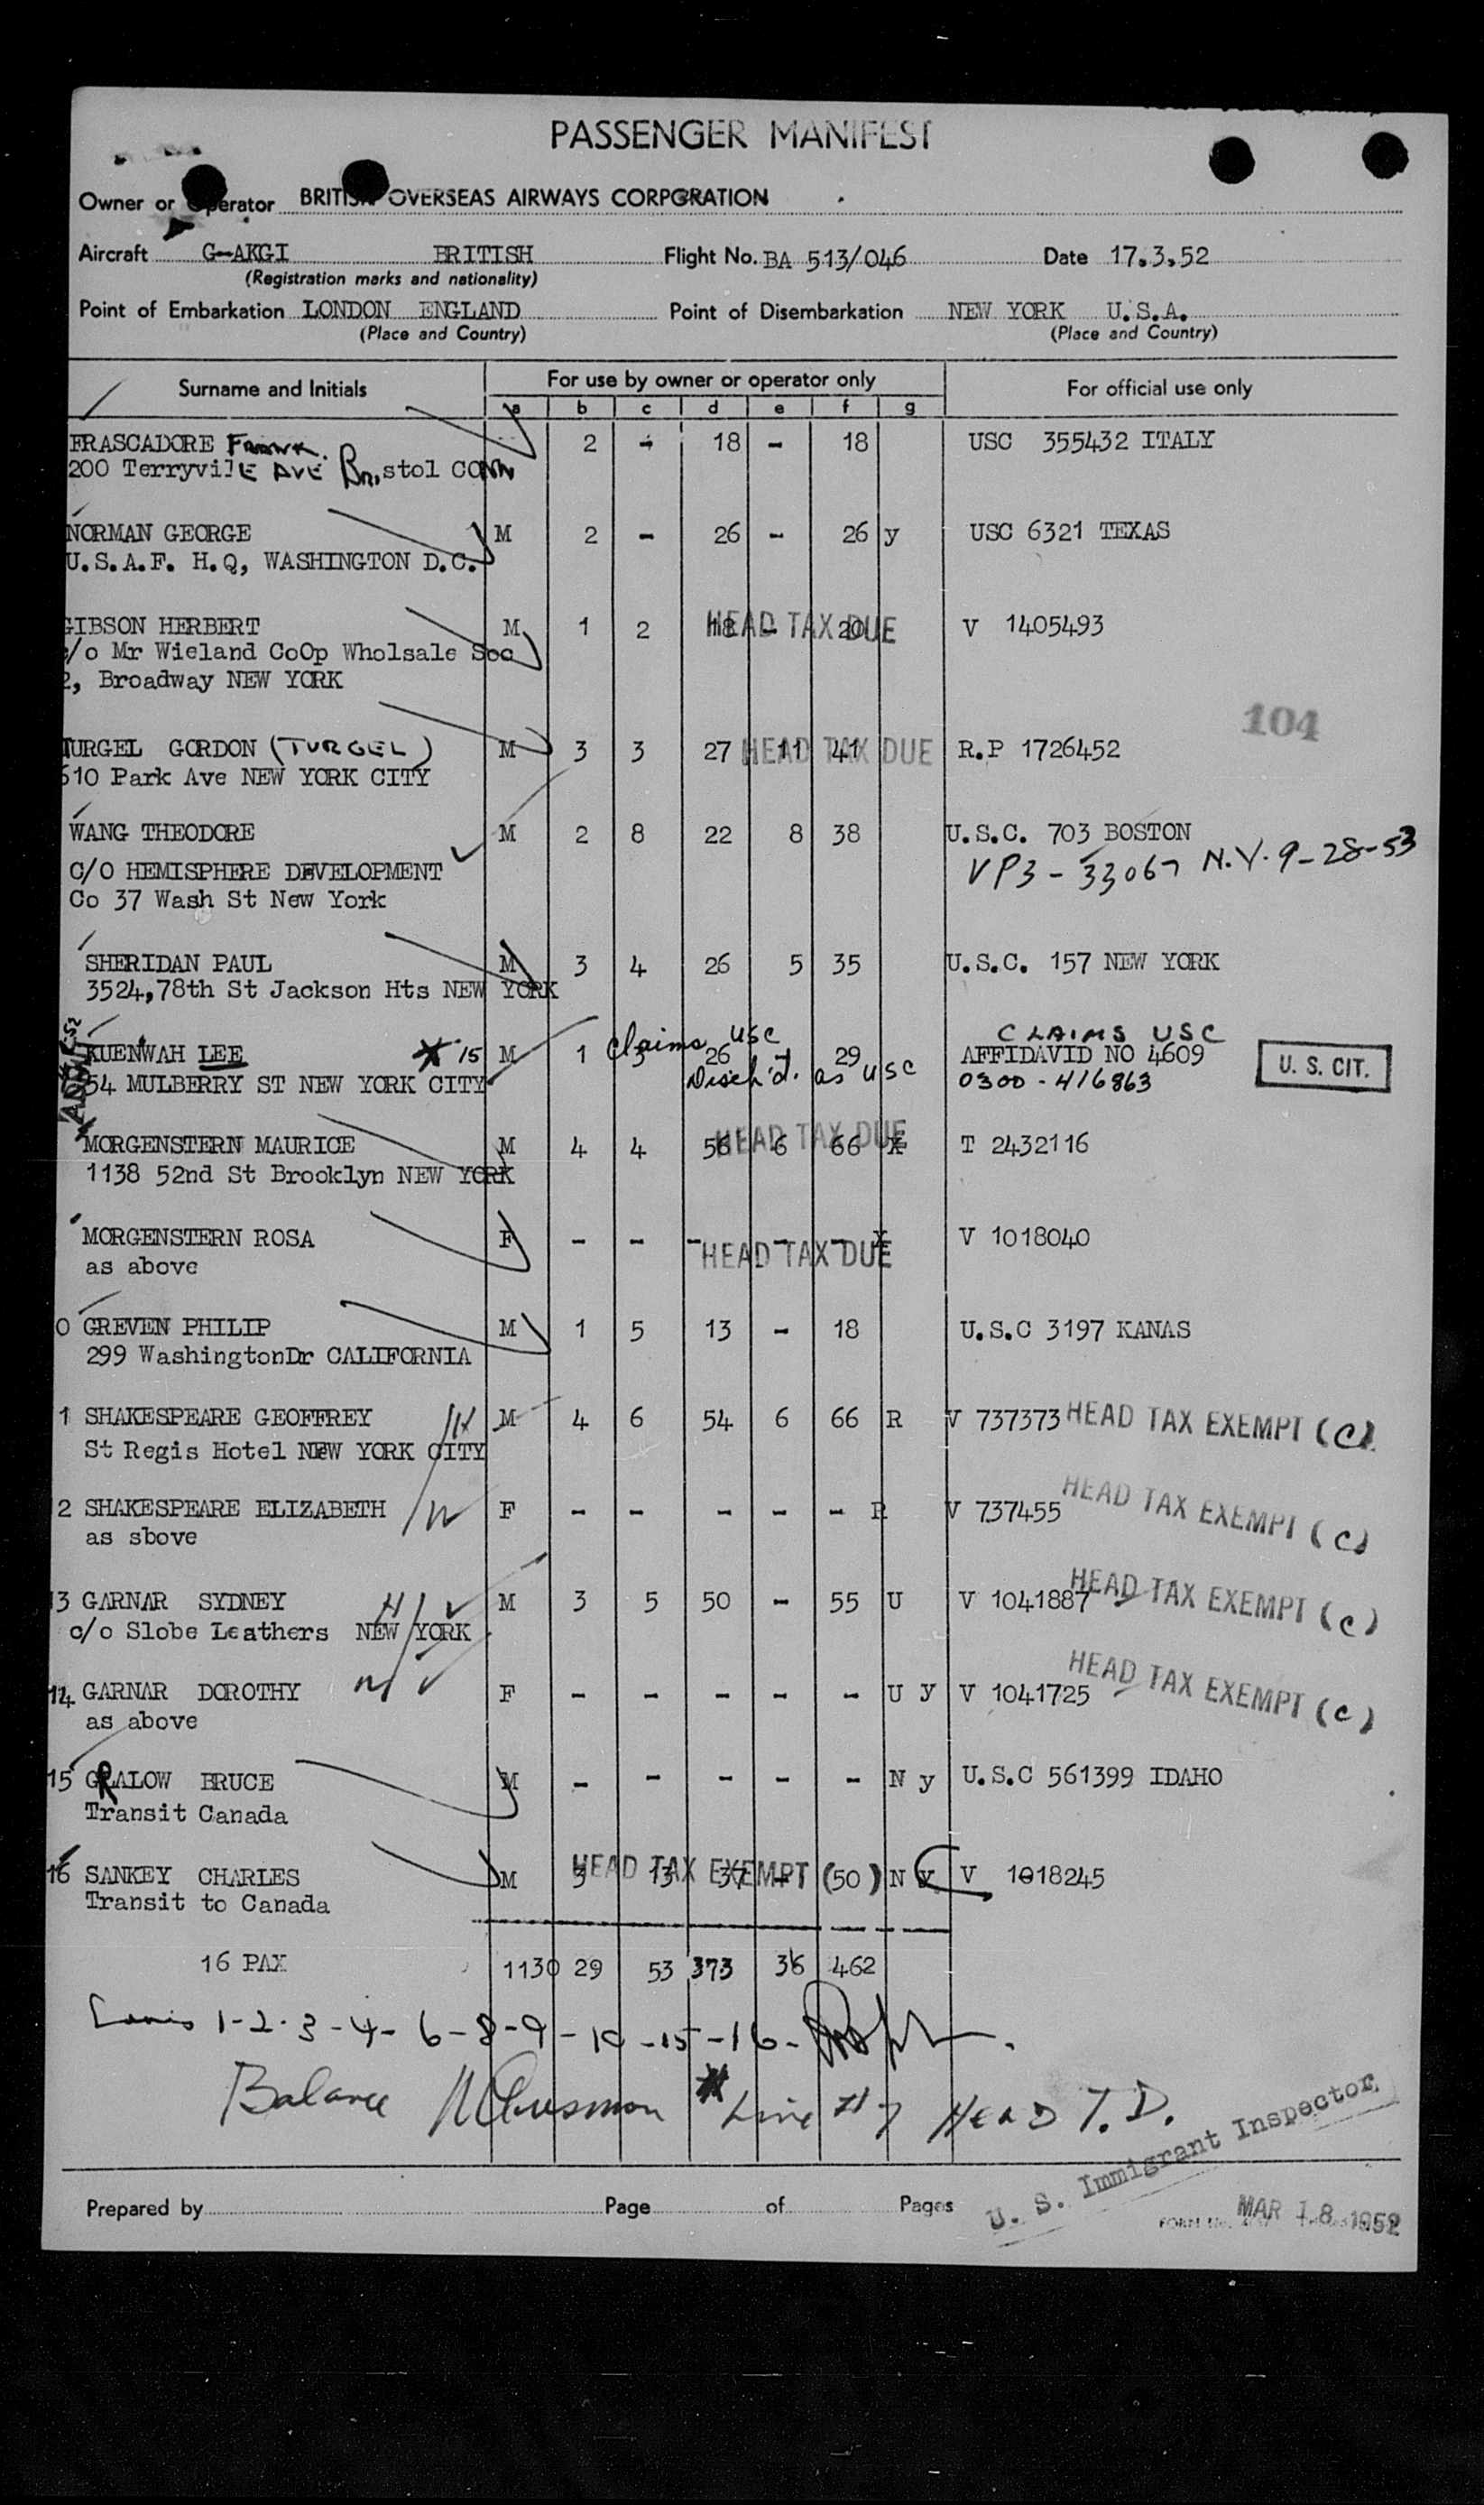 PASSENGER MANIFEST
Owner or Operator BRITISH OVERSEAS AIRWAYS CORPORATION
Aircraft G-AKGI BRITISH Flight No. BA 513/046 Date 17.3.52
(Registration marks and nationality)
Point of Embarkation LONDON ENGLAND Point of Disembarkation NEW YORK U.S.A.
(Place and Country) (Place and Country)
Surname and Initials For use by owner or operator only For official use only
a b c d e f g
FRASCADORE FRANK. 2 - 18 - 18 USC 355432 ITALY
200 Terryville AVE Bristol CONN
NORMAN GEORGE M 2 - 26 - 26 y USC 6321 TEXAS
U.S.A.F. H.Q, WASHINGTON D.C.
GIBSON HERBERT M 1 2 18 - 20 HEAD TAX DUE V 1405493
c/o Mr Wieland CoOp Wholsale Soc
2, Broadway NEW YORK
104
TURGEL GORDON (TURGEL) M 3 3 27 11 41 HEAD TAX DUE R.P 1726452
610 Park Ave NEW YORK CITY
WANG THEODORE M 2 8 22 8 38 U.S.C. 703 BOSTON
C/O HEMISPHERE DEVELOPMENT VP3-33067 N.Y. 9-28-53
Co 37 Wash St New York
SHERIDAN PAUL M 3 4 26 5 35 U.S.C. 157 NEW YORK
3524,78th St Jackson Hts NEW YORK
Claims USC CLAIMS USC
KUENWAH LEE 15 M 1 3 26 29 AFFIDAVID NO 4609 U. S. CIT.
54 MULBERRY ST NEW YORK CITY Disch'd. as USC 0300-416863
MORGENSTERN MAURICE M 4 4 56 6 66 X HEAD TAX DUE T 2432116
1138 52nd St Brooklyn NEW YORK
MORGENSTERN ROSA F - - - - - X V 1018040
as above HEAD TAX DUE
0 GREVEN PHILIP M 1 5 13 - 18 U.S.C 3197 KANAS
299 WashingtonDr CALIFORNIA
1 SHAKESPEARE GEOFFREY M 4 6 54 6 66 R V 737373 HEAD TAX EXEMPT (C)
St Regis Hotel NEW YORK CITY
2 SHAKESPEARE ELIZABETH F - - - - - R V 737455 HEAD TAX EXEMPT (C)
as sbove
13 GARNAR SYDNEY M 3 5 50 - 55 U V 1041887 HEAD TAX EXEMPT (C)
c/o Slobe Leathers NEW YORK
14 GARNAR DOROTHY F - - - - - U y V 1041725 HEAD TAX EXEMPT (C)
as above
15 GRALOW BRUCE M - - - - - N y U.S.C 561399 IDAHO
Transit Canada
16 SANKEY CHARLES M 3 13 37 - 50 N y HEAD TAX EXEMPT ( ) V 1018245
Transit to Canada
16 PAX 1130 29 53 373 36 462
1-2-3-4-6-8-9-10-15-16-
Balance Line #7 HEAD T.D.
U. S. Immigrant Inspector
Prepared by Page of Pages
MAR 18 1952